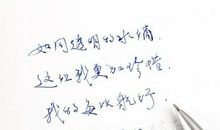 如同透明的水滴
这让我更加珍惜
我的每次航行.